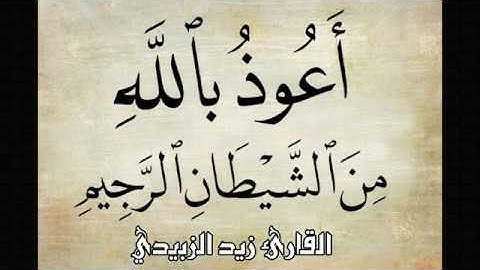 أَعُوذُ بِٱللَّهِ
مِنَ ٱلشَّيْطَانِ ٱلرَّجِيمِ
القارئ زيد الزبيدي